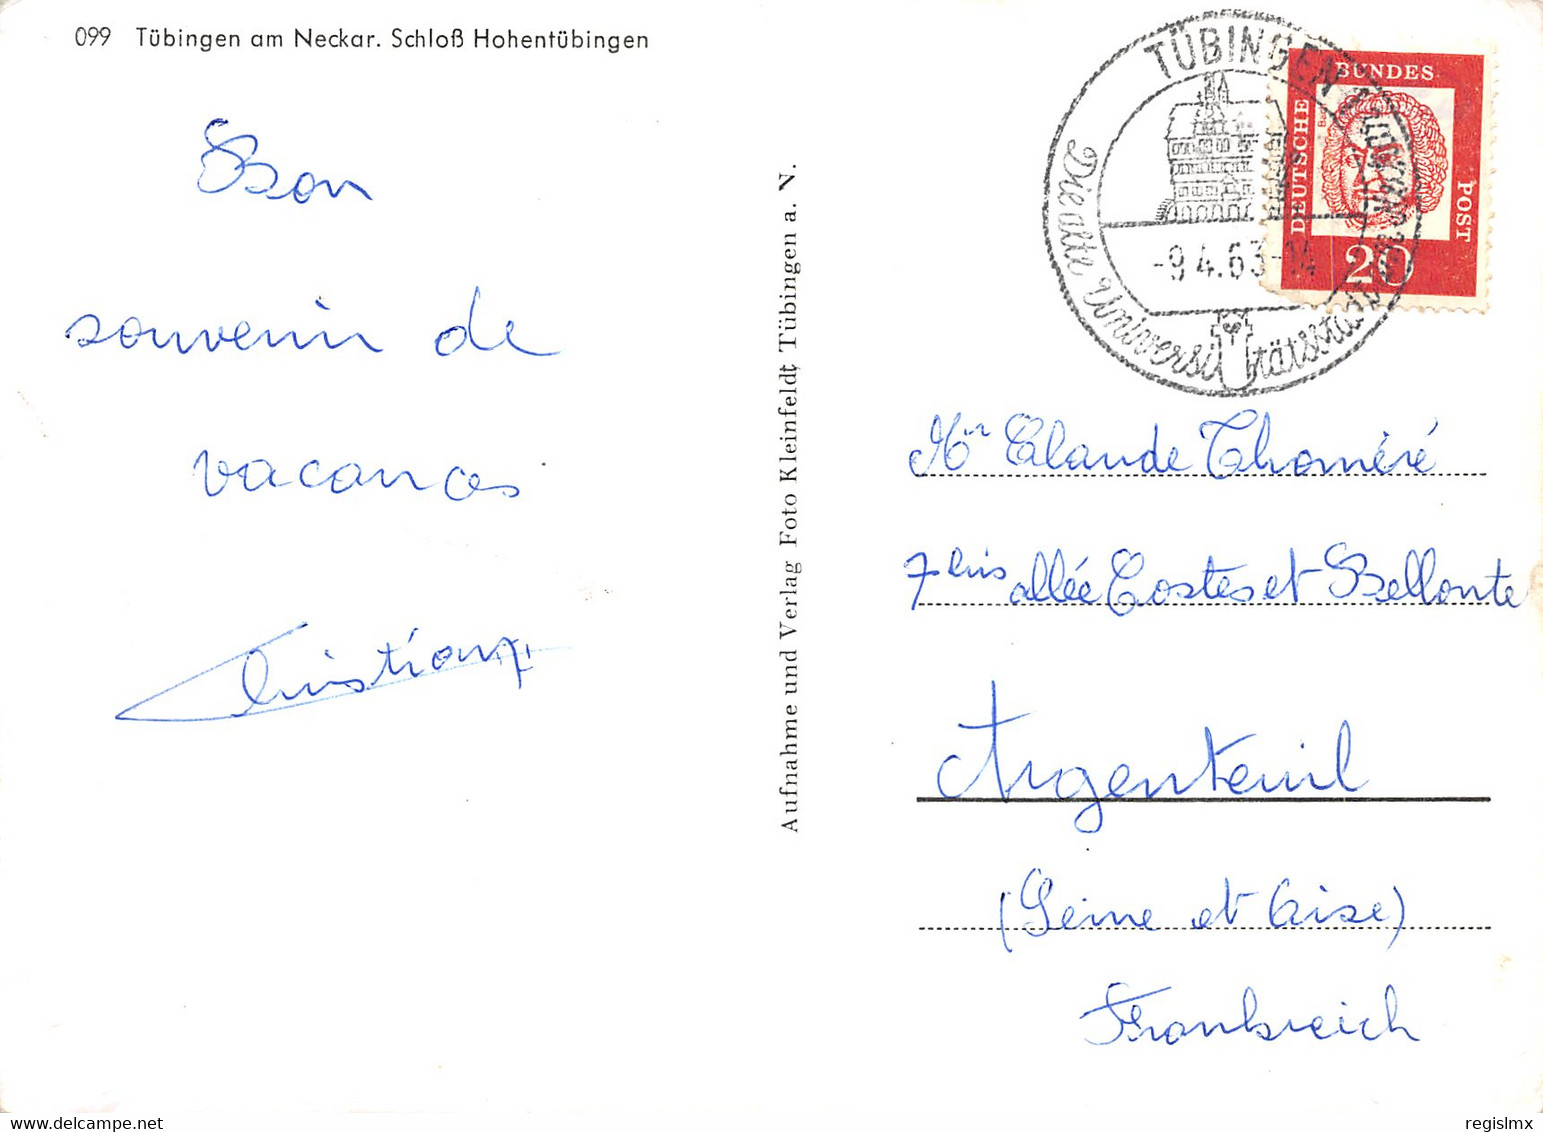 099 Tübingen am Neckar. Schloß Hohentübingen
Bon
souvenir de
vacances
Christiane
Aufnahme und Verlag Foto Kleinfeldt, Tübingen a. N.
TÜBINGEN
Die alte Universitätsstadt
-9.4.63-14
DEUTSCHE
BUNDES
POST
20
Mr Claude Thoméré
7 bis allée Costes et Bellonte
Argenteuil
(Seine et Oise)
Frankreich
regislmx